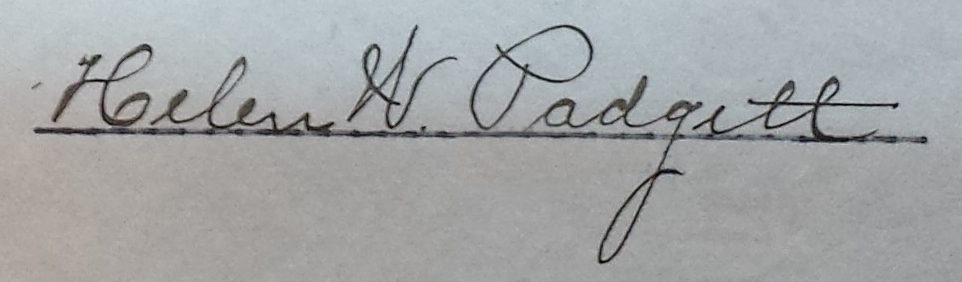 Helen W. Padgett